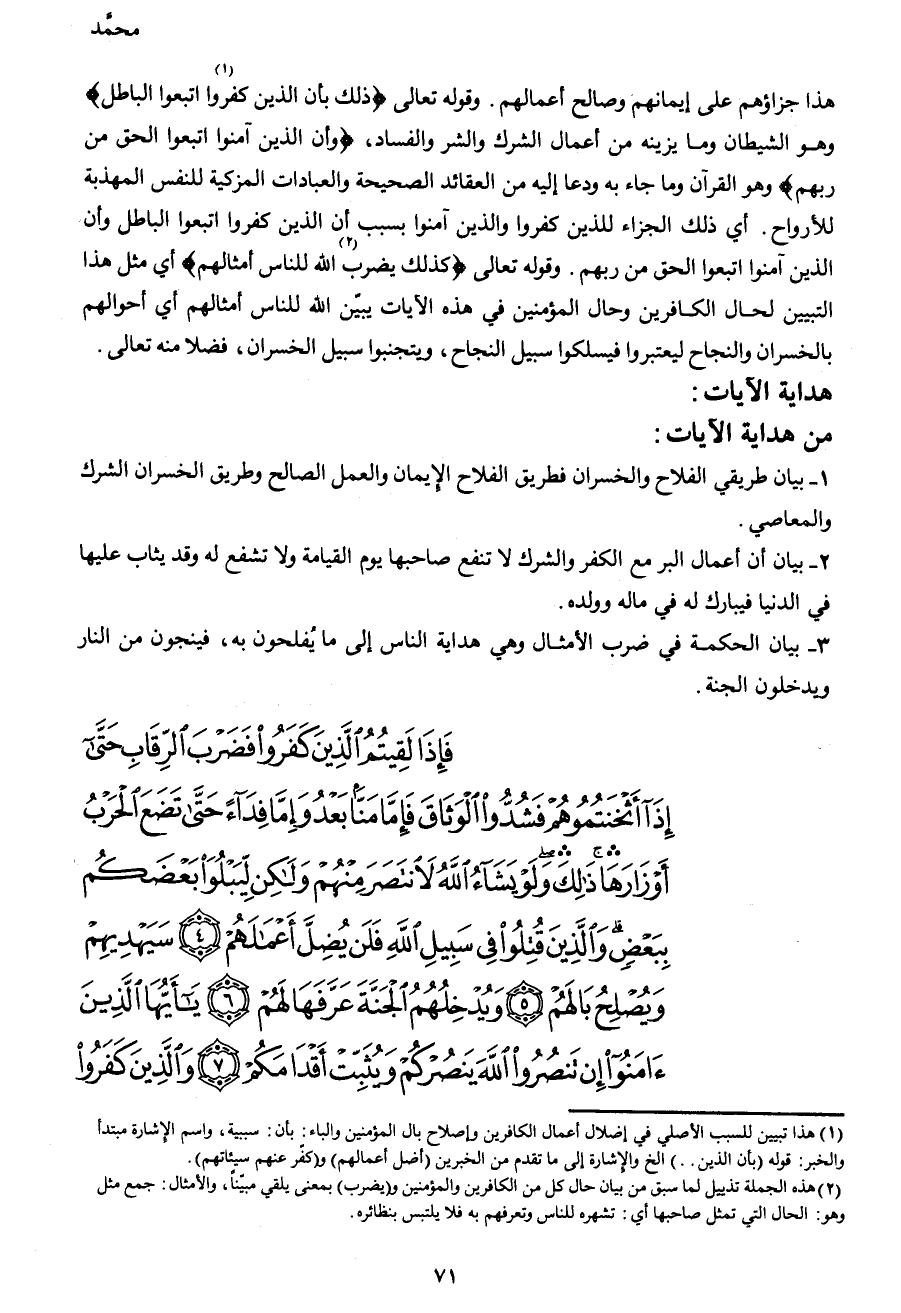 محمَّد
(١)
هذا جزاؤهم على إيمانهم وصالح أعمالهم. وقوله تعالى ﴿ذلك بأن الذين كفروا اتبعوا الباطل﴾
وهو الشيطان وما يزينه من أعمال الشرك والشر والفساد، ﴿وأن الذين آمنوا اتبعوا الحق من
ربهم﴾ وهو القرآن وما جاء به ودعا إليه من العقائد الصحيحة والعبادات المزكية للنفس المهذبة
للأرواح. أي ذلك الجزاء للذين كفروا والذين آمنوا بسبب أن الذين كفروا اتبعوا الباطل وأن
(٢)
الذين آمنوا اتبعوا الحق من ربهم. وقوله تعالى ﴿كذلك يضرب الله للناس أمثالهم﴾ أي مثل هذا
التبيين لحال الكافرين وحال المؤمنين في هذه الآيات يبيّن الله للناس أمثالهم أي أحوالهم
بالخسران والنجاح ليعتبروا فيسلكوا سبيل النجاح، ويتجنبوا سبيل الخسران، فضلا منه تعالى.
هداية الآيات:
من هداية الآيات:
١ـ بيان طريقي الفلاح والخسران فطريق الفلاح الإيمان والعمل الصالح وطريق الخسران الشرك
والمعاصي.
٢ـ بيان أن أعمال البر مع الكفر والشرك لا تنفع صاحبها يوم القيامة ولا تشفع له وقد يثاب عليها
في الدنيا فيبارك له في ماله وولده.
٣ـ بيان الحكمة في ضرب الأمثال وهي هداية الناس إلى ما يُفلحون به، فينجون من النار
ويدخلون الجنة.
فَإِذَا لَقِيتُمُ ٱلَّذِينَ كَفَرُوا۟ فَضَرْبَ ٱلرِّقَابِ حَتَّىٰٓ
إِذَآ أَثْخَنتُمُوهُمْ فَشُدُّوا۟ ٱلْوَثَاقَ فَإِمَّا مَنًّۢا بَعْدُ وَإِمَّا فِدَآءً حَتَّىٰ تَضَعَ ٱلْحَرْبُ
أَوْزَارَهَا ۚ ذَٰلِكَ ۖ وَلَوْ يَشَآءُ ٱللَّهُ لَٱنتَصَرَ مِنْهُمْ وَلَٰكِن لِّيَبْلُوَا۟ بَعْضَكُم
بِبَعْضٍ ۗ وَٱلَّذِينَ قُتِلُوا۟ فِى سَبِيلِ ٱللَّهِ فَلَن يُضِلَّ أَعْمَٰلَهُمْ ﴿٤﴾ سَيَهْدِيهِمْ
وَيُصْلِحُ بَالَهُمْ ﴿٥﴾ وَيُدْخِلُهُمُ ٱلْجَنَّةَ عَرَّفَهَا لَهُمْ ﴿٦﴾ يَٰٓأَيُّهَا ٱلَّذِينَ
ءَامَنُوٓا۟ إِن تَنصُرُوا۟ ٱللَّهَ يَنصُرْكُمْ وَيُثَبِّتْ أَقْدَامَكُمْ ﴿٧﴾ وَٱلَّذِينَ كَفَرُوا۟
(١) هذا تبيين للسبب الأصلي في إضلال أعمال الكافرين وإصلاح بال المؤمنين والباء: بأن: سببية، واسم الإشارة مبتدأ
والخبر: قوله (بأن الذين..) الخ والإشارة إلى ما تقدم من الخبرين (أضل أعمالهم) و(كفّر عنهم سيئاتهم).
(٢) هذه الجملة تذييل لما سبق من بيان حال كل من الكافرين والمؤمنين و(يضرب) بمعنى يلقي مبيّناً، والأمثال: جمع مثل
وهو: الحال التي تمثل صاحبها أي: تشهره للناس وتعرفهم به فلا يلتبس بنظائره.
٧١